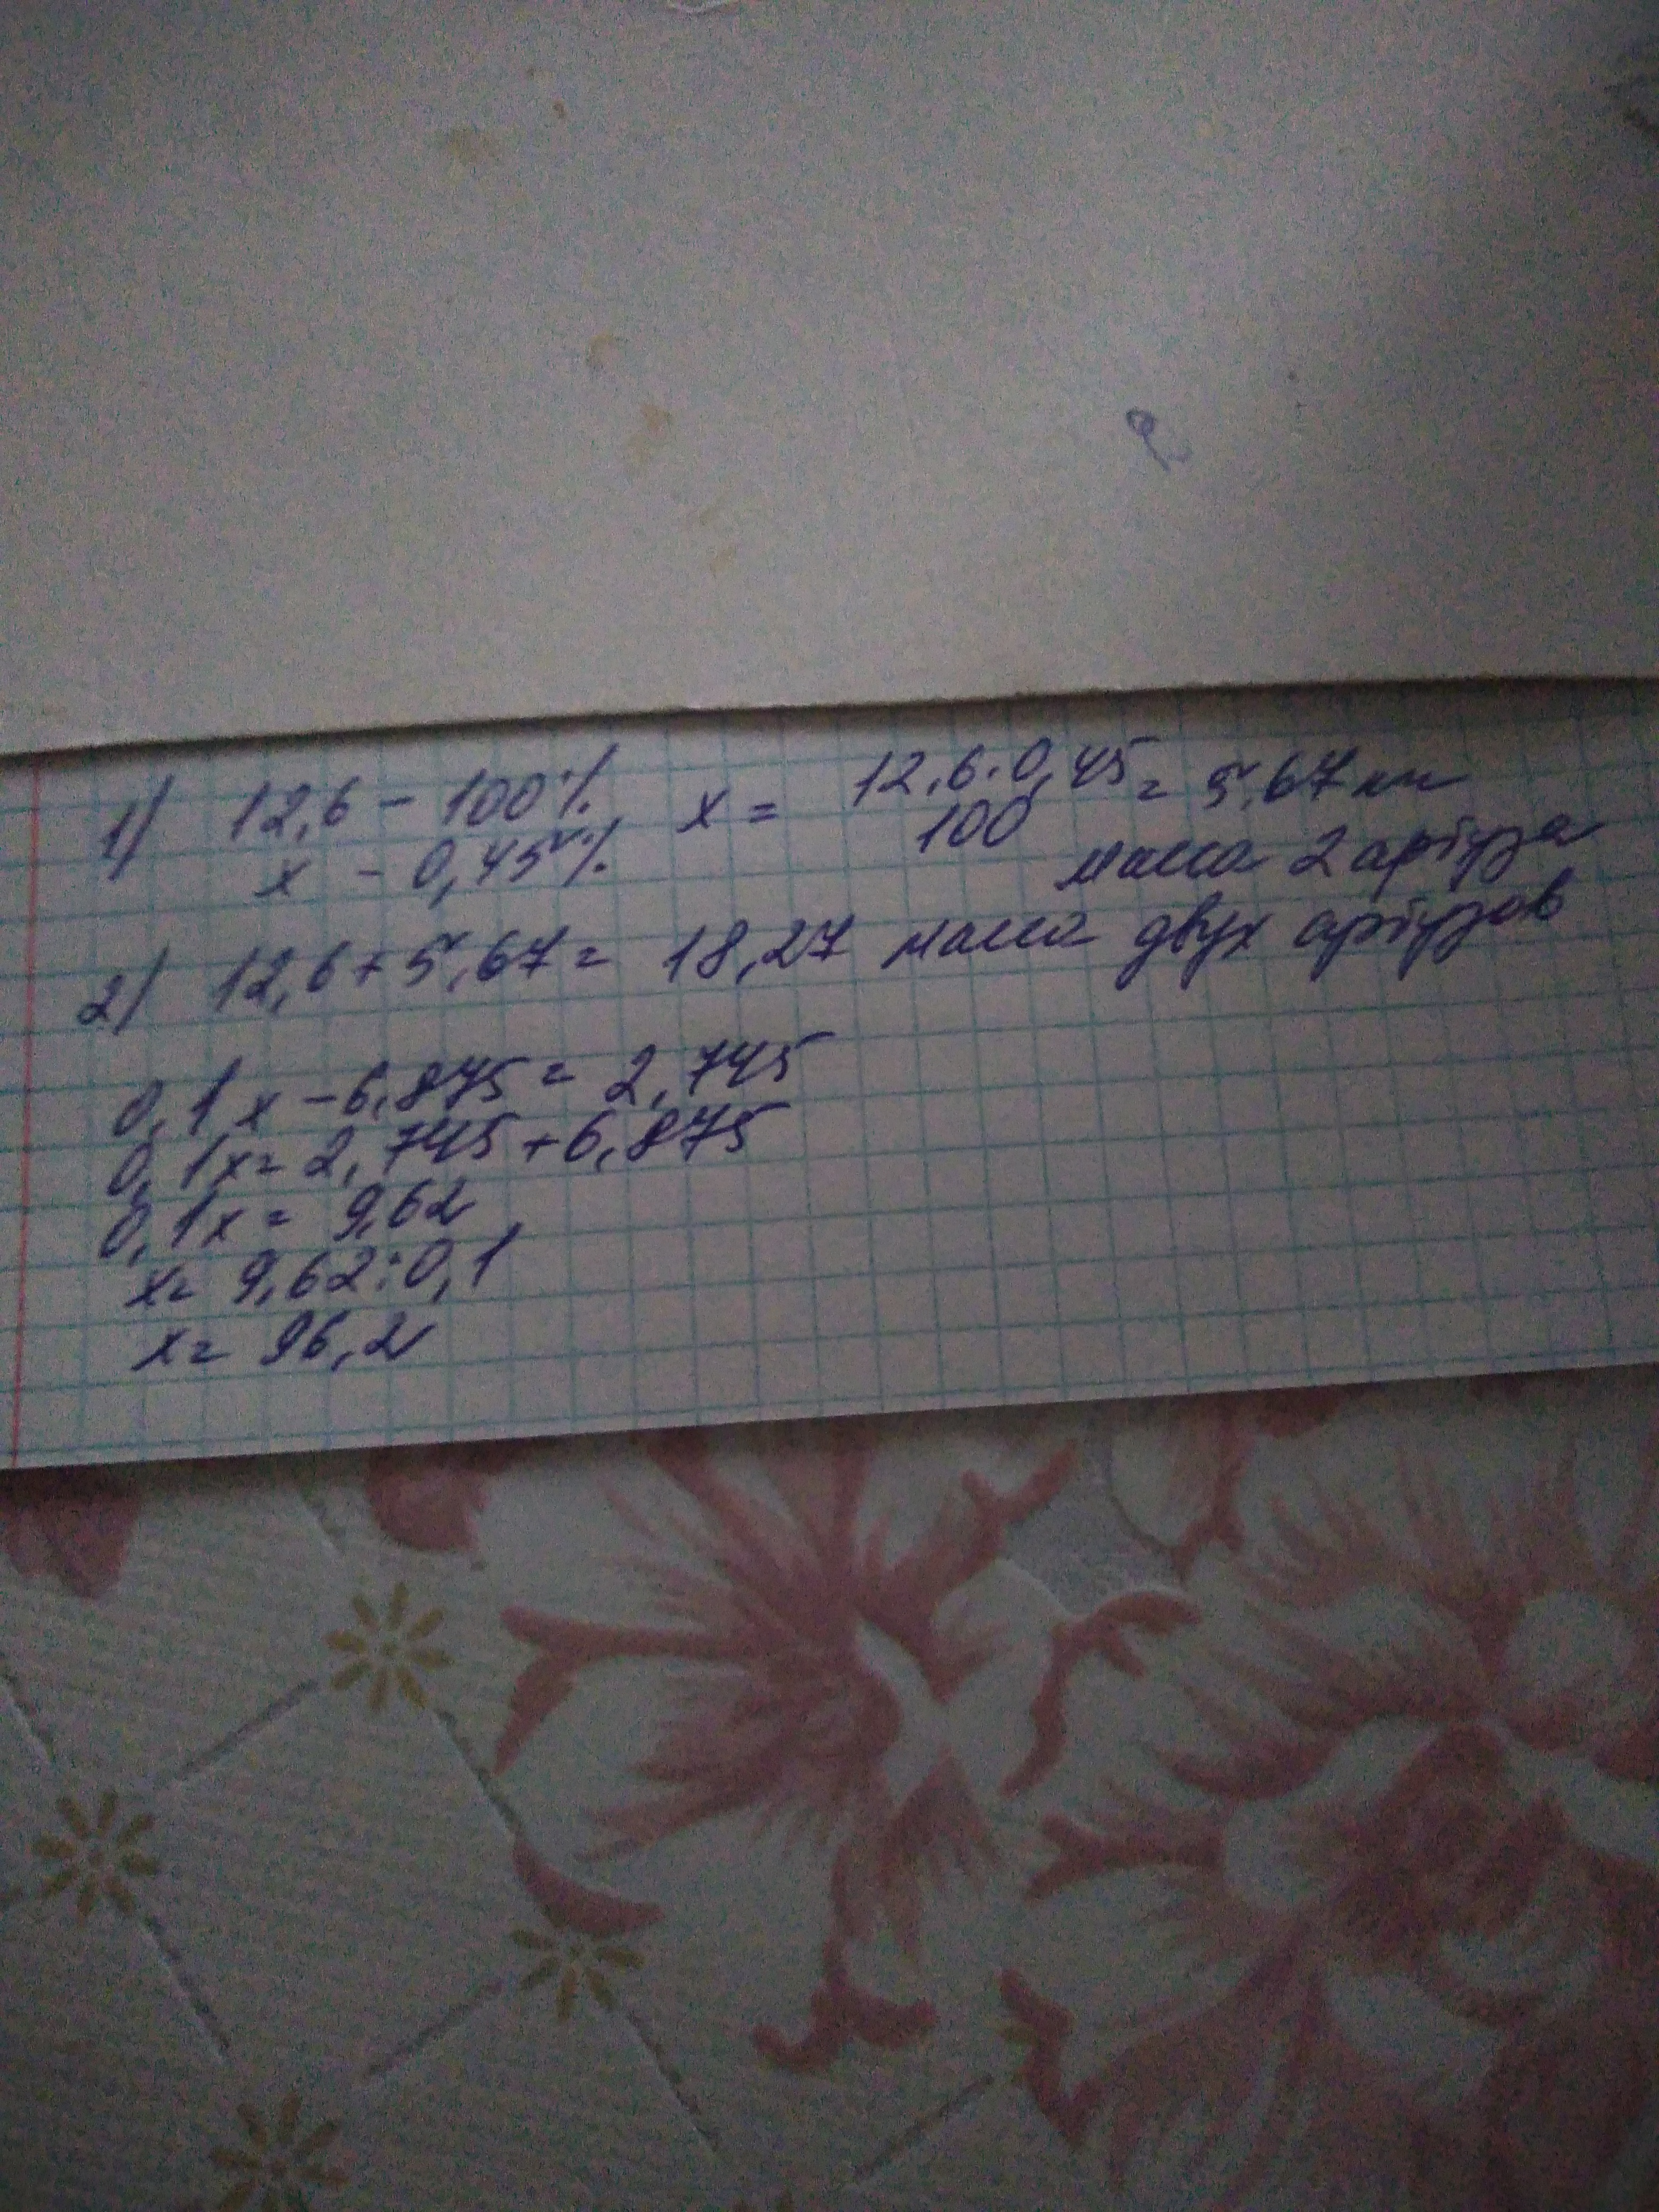 1) 12,6 - 100% x = 12,6·0,45/100 = 5,67 кг
x - 0,45% масса 2 арбуза
2) 12,6+5,67= 18,27 масса двух арбузов
0,1x-6,875= 2,745
0,1x= 2,745+6,875
0,1x= 9,62
x= 9,62:0,1
x= 96,2